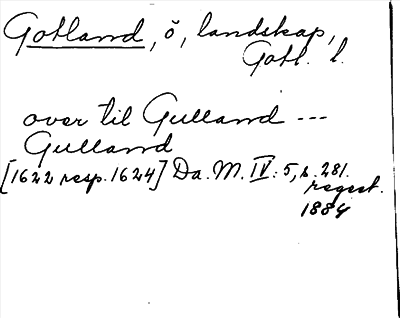 Gotland, ö, landskap,
Gotl. l.
over til Gulland ---
Gulland
[1622 resp. 1624] Da. M. IV: 5, s. 281.
regest.
1884